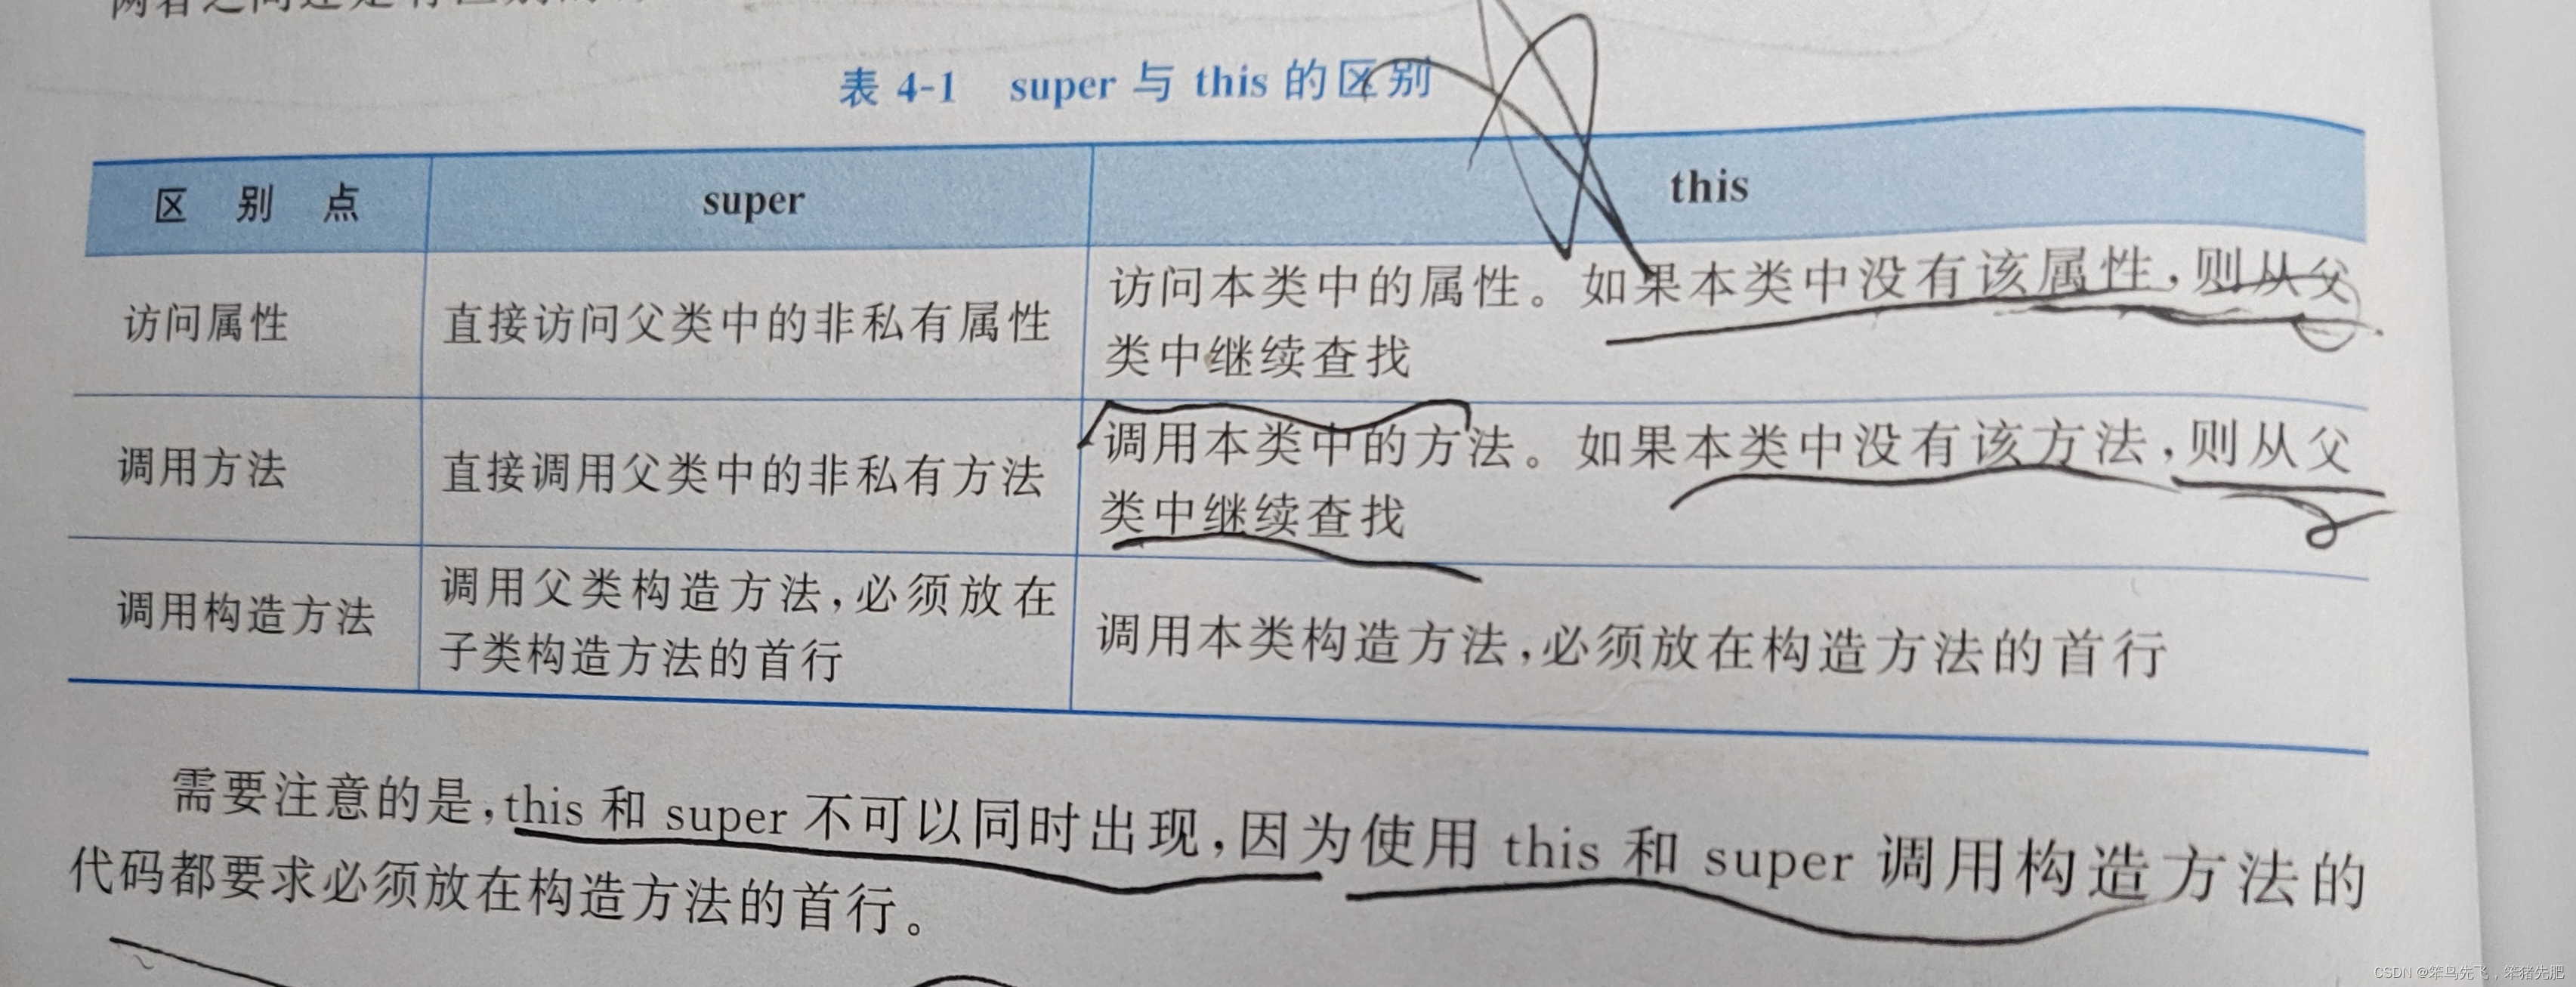 表 4-1 super 与 this 的区别
区 别 点 super this
访问属性 直接访问父类中的非私有属性 访问本类中的属性。如果本类中没有该属性,则从父
类中继续查找
调用方法 直接调用父类中的非私有方法 调用本类中的方法。如果本类中没有该方法,则从父
类中继续查找
调用构造方法 调用父类构造方法,必须放在
子类构造方法的首行 调用本类构造方法,必须放在构造方法的首行
需要注意的是,this 和 super 不可以同时出现,因为使用 this 和 super 调用构造方法的
代码都要求必须放在构造方法的首行。
CSDN @笨鸟先飞,笨猪先肥